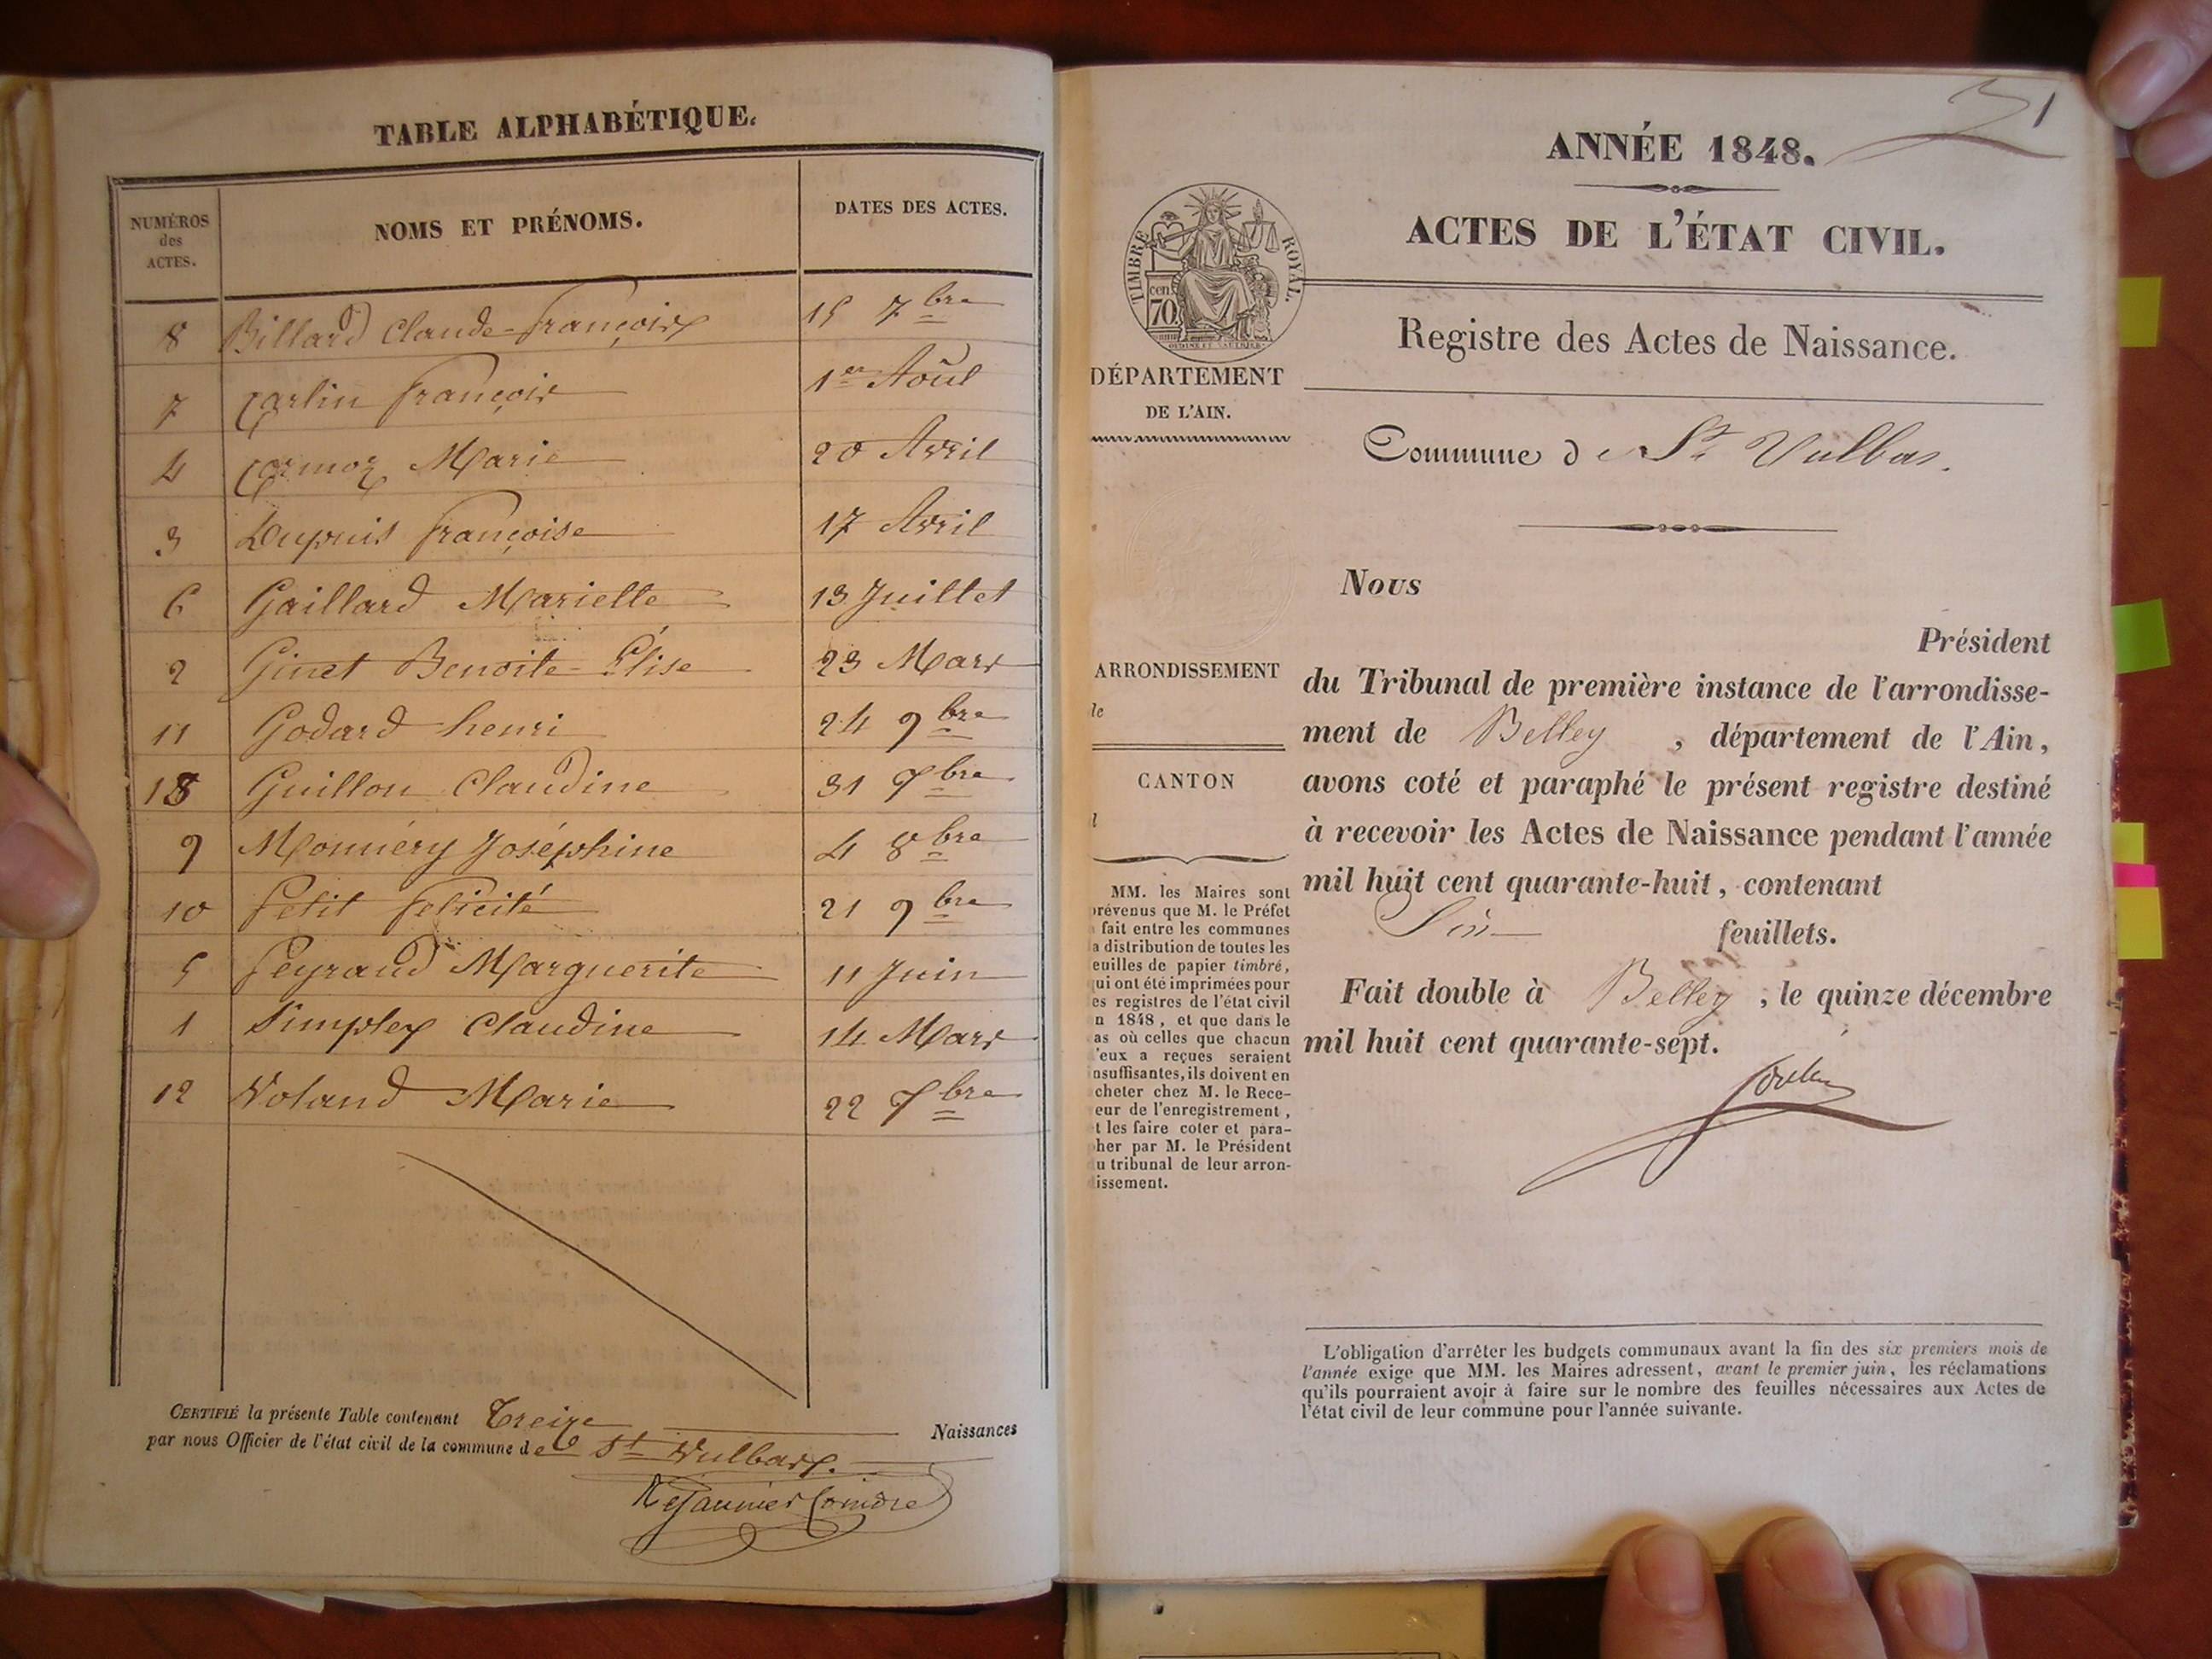 TABLE ALPHABÉTIQUE.
NUMÉROS des ACTES. NOMS ET PRÉNOMS. DATES DES ACTES.
8 Billard Claude-françois 15 7bre
7 Carlin françois 1er Août
4 Cormoz Marie 20 Avril
3 Dupuis françoise 17 Avril
6 Gaillard Mariette 13 Juillet
2 Ginet Benoite-Élise 23 Mars
11 Godard henri 24 9bre
13 Guillon Claudine 31 Xbre
9 Monnéry Joséphine 4 8bre
10 Petit felicité 21 9bre
5 Peyraud Marguerite 11 Juin
1 Simplex Claudine 14 Mars
12 Voland Marie 22 Xbre
CERTIFIÉ la présente Table contenant Treize Naissances
par nous Officier de l'état civil de la commune de St Vulbas.
1
ANNÉE 1848.
ACTES DE L'ÉTAT CIVIL.
TIMBRE ROYAL.
cen. 70
Registre des Actes de Naissance.
DÉPARTEMENT
DE L'AIN.
Commune de St Vulbas.
Nous
Président
ARRONDISSEMENT
le
du Tribunal de première instance de l'arrondisse-
ment de Belley, département de l'Ain,
CANTON
l
avons coté et paraphé le présent registre destiné
à recevoir les Actes de Naissance pendant l'année
mil huit cent quarante-huit, contenant
feuillets.
Fait double à Belley, le quinze décembre
mil huit cent quarante-sept.
MM. les Maires sont
révenus que M. le Préfet
fait entre les communes
a distribution de toutes les
euilles de papier timbré,
ui ont été imprimées pour
es registres de l'état civil
n 1848, et que dans le
as où celles que chacun
'eux a reçues seraient
nsuffisantes, ils doivent en
cheter chez M. le Rece-
eur de l'enregistrement,
t les faire coter et para-
her par M. le Président
u tribunal de leur arron-
issement.
L'obligation d'arrêter les budgets communaux avant la fin des six premiers mois de
l'année exige que MM. les Maires adressent, avant le premier juin, les réclamations
qu'ils pourraient avoir à faire sur le nombre des feuilles nécessaires aux Actes de
l'état civil de leur commune pour l'année suivante.